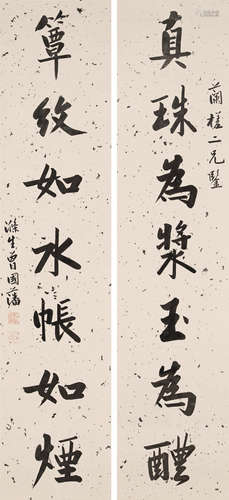 蘭槎一兄鑒
真珠為漿玉為醴
簟紋如水帳如煙
滌生曾國藩